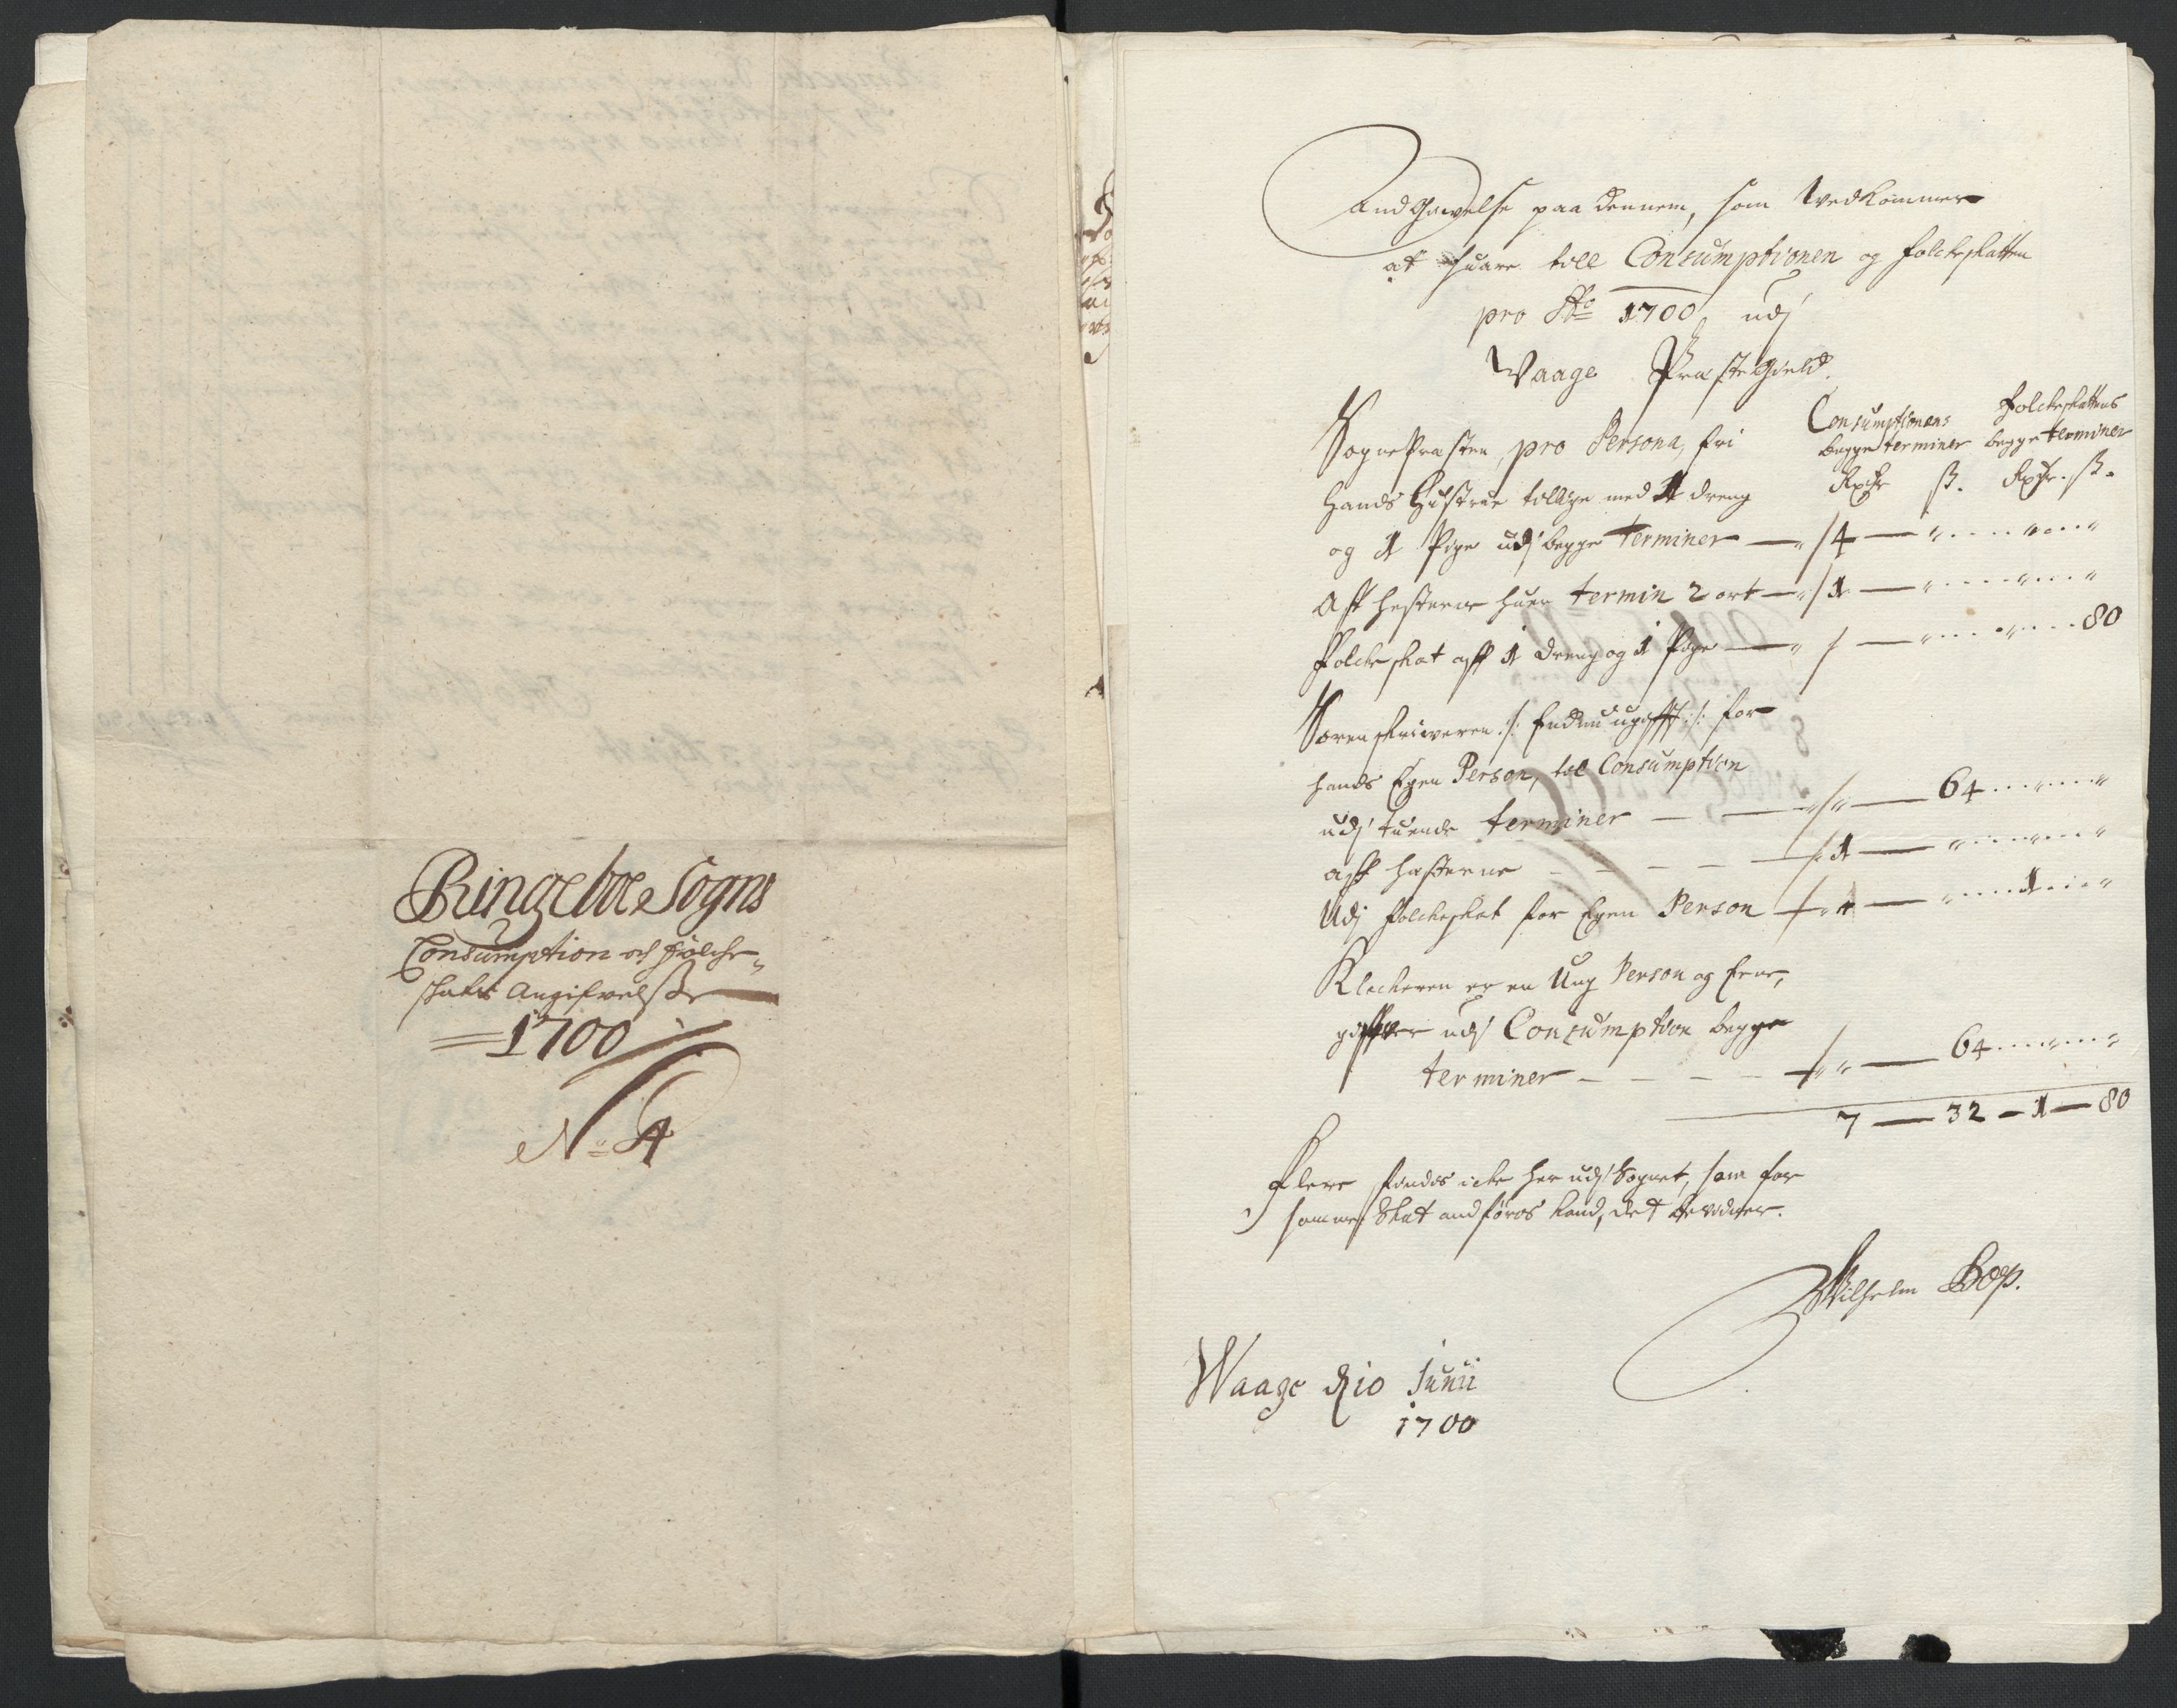 Ringeboe Sogns
Consumption och Folche-
skats Angifvelsse
1700
No 4
Andgivelse paa dennem, som vedkommer
at suare till Consumptionen og folcheskatten
pro Ao 1700, udj
Waage Præstegield.
Consumptionens folcheskattens
begge terminer begge terminer
Rdr ß. Rdr. ß.
SognePræsten, pro Persona, fri
hands Hustrue tillige med 1 dreng
og 1 Pige udj begge terminer — 4 — " " "
Aff hesterne huer termin 2 ort — 1 — " " "
Folcheskat aff 1 dreng og 1 Pige — " — " " 80
Sorenskriveren ./. Endnu ugifft ./. for
hands Egen Person, till Consumption
udj tuende terminer — " — 64 " "
aff hæsterne — 1 — " " "
Udj folcheskat for Egen Person — " — " 1 "
Klocheren er en Ung Person og
udj Consumption begge
terminer — " — 64 " "
7 — 32 — 1 — 80
Flere findes icke her udj Sognet, som for
samme Skat andføres kand, det
Wilhelm Bop.
Waage d 10 Junii
1700